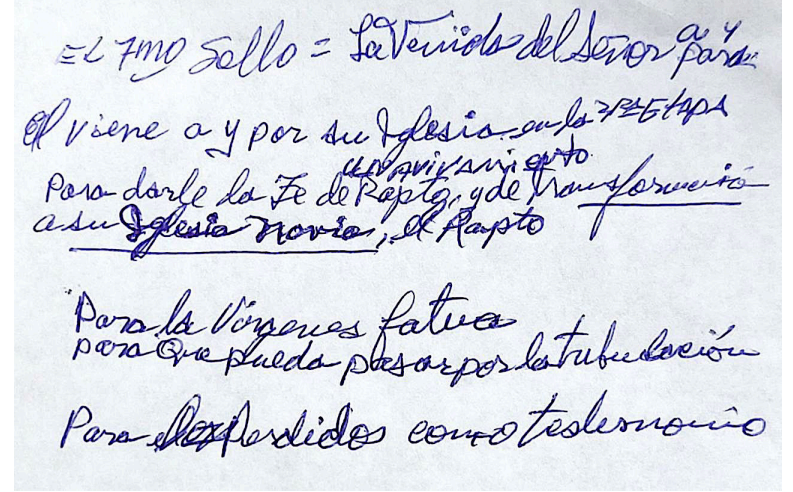 EL 7MO Sello = La Venida del Señor a y para
él viene a y por su Iglesia en la 3RA Etapa
UN AVIVAMIENTO
Para darle la Fe de Rapto, y de transformació
a su Iglesia Novia, el Rapto
Para la Vírgenes fatua
para que pueda pasar por la tribulación
Para los Perdidos como testimonio